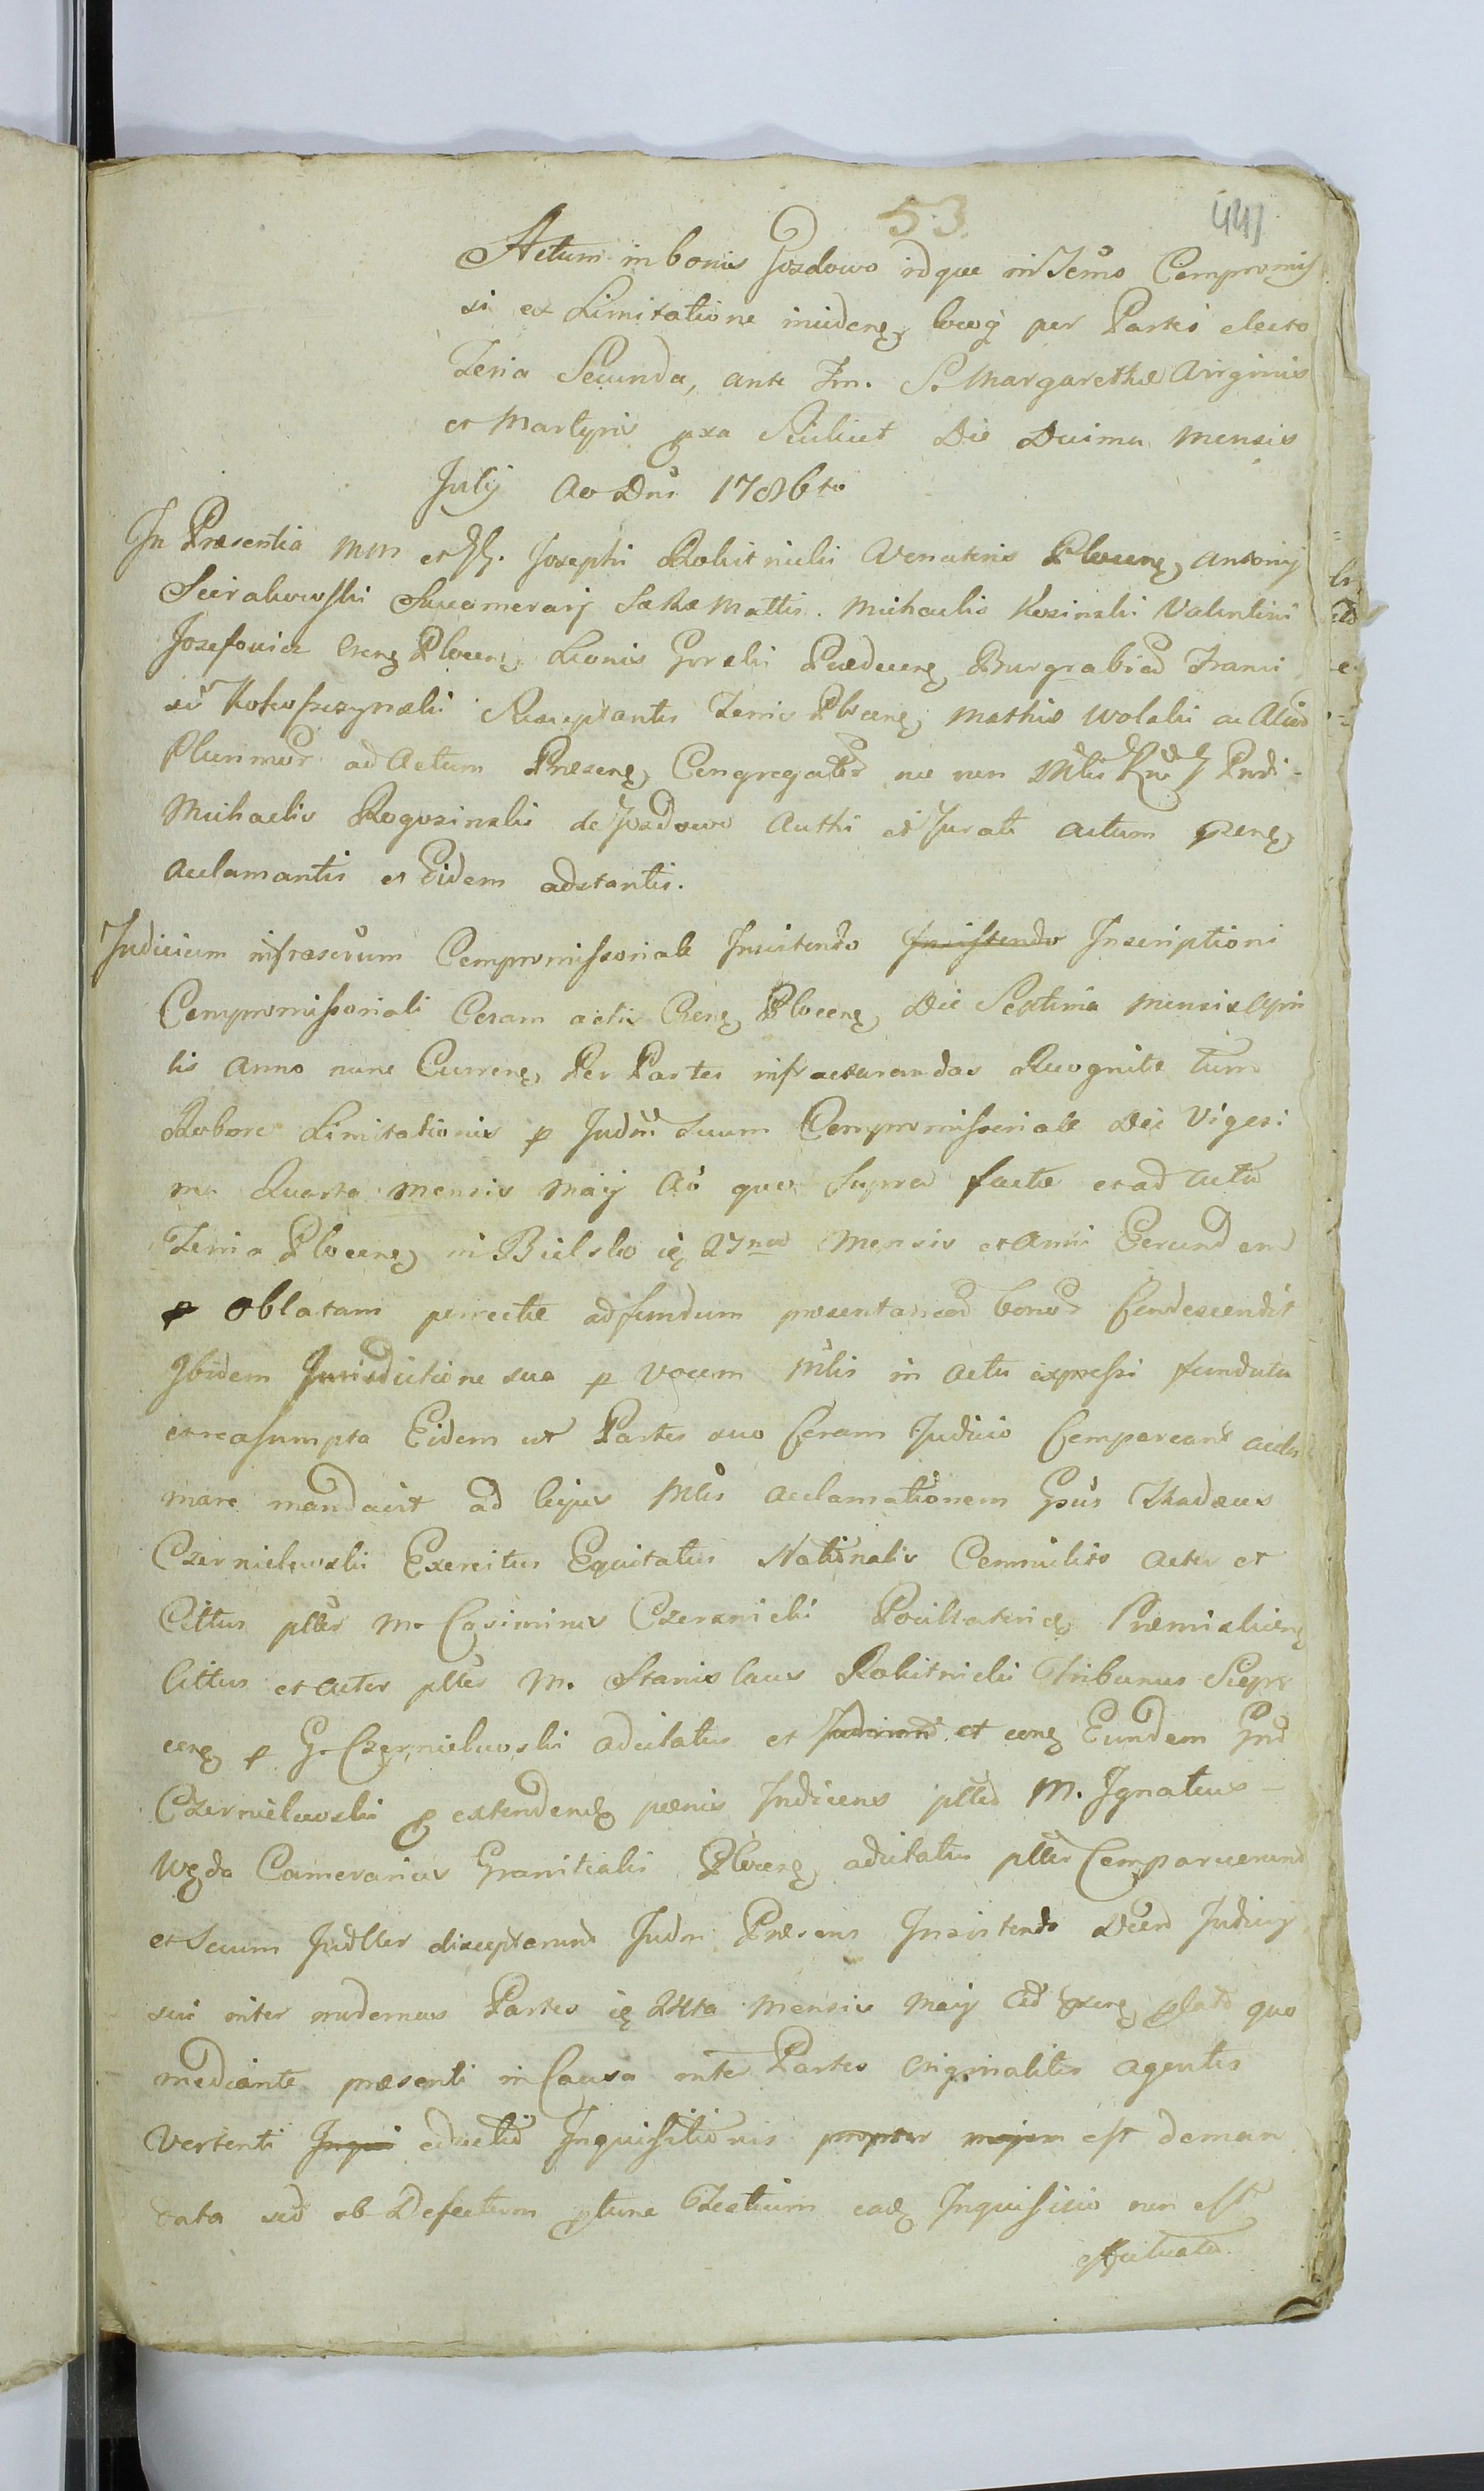 53.
441
Actum in bonis Gozdowo idque in Termo Compromis
si ex Limitatione inciden, locoq per Partes electo
Feria Secunda, ante Fm. S. Margarethæ Virginis
et Martyris pxa Scilicet Die Decima Mensis
July Ao Dni 1786to
In Præsentia MM et GG. Josephi Rokitnicki Venatoris Plocen, Antonij
Sierakowski Succamerarij SæRæMattis. Michaelis Kosinski Valentini
Josefowicz Cren Plocen, Leonis Gorski Burgrabiæ Franci
sci Kokoszczynski Susceptantis Terris Plocen, Mathiæ Wolski ac Alior
Plurimor ad Actum Præsen, Congregator nec non Mtlis Prvdi
Michaelis Rogozinski de Gozdowo Authi et Jurati actum pzen,
acclamantis et Eidem adstantis.
Judicium infrascrum Compromissoriale Insistendo Insistendo Inscriptioni
Compromissoriali Coram actis Cren, Plocen, Die Septima Mensis Apri
lis Anno nunc Curren, Per Partes infracturandas Recognitæ tum
Robore Limitationis p Judm Suum Compromissoriale Die Vigesi
ma Quarta Mensis Maij Ao quo Supra factæ et ad acta
Terris Plocen, in Bielsko 27ma Mensis et Anni Eorund em
p Oblatam porrectæ ad fundum præsentaneor bonor Condescendit
Ibidem Jurisdictione sua p Vocem Mlis in Actu expressi fundata
et reasumpta Eidem ut Partes suo Coram Judicio Compareant accla
mare mandavit ad cujus Mlis acclamationem Gsus Thadæus
Czernielewski Exercitus Equitatus Nationalis Commilito Actor et
Cittus ptter M. Casimirus Czersnicki Pocillatorid, Præmislien,
Cittus et Actor ptter M. Stanislaus Rokitnicki Tribunus Sieprc
cen, p G. Czernielewski adcitatus et et con, Eundem Gnd
Czernielewski p extenden, pænis Indicens ptter M. Ignatius
Węda Camerarius Granitialis Plocen, adcitatus ptter Comparuerunt
et Secum Judtter disceptarunt Judm Præsens Insistendo Decro Judicij
sui inter modernas Partes 24ta Mensis Maij Ao pzen, plato quo
mediante præsenti in Causa inter Partes originaliter agentes
Vertenti Inqui eductio Inquisitionis propter majem est deman
data sed ob Defectum ptunc Testium ead, Inquisitio non est
effectuata.